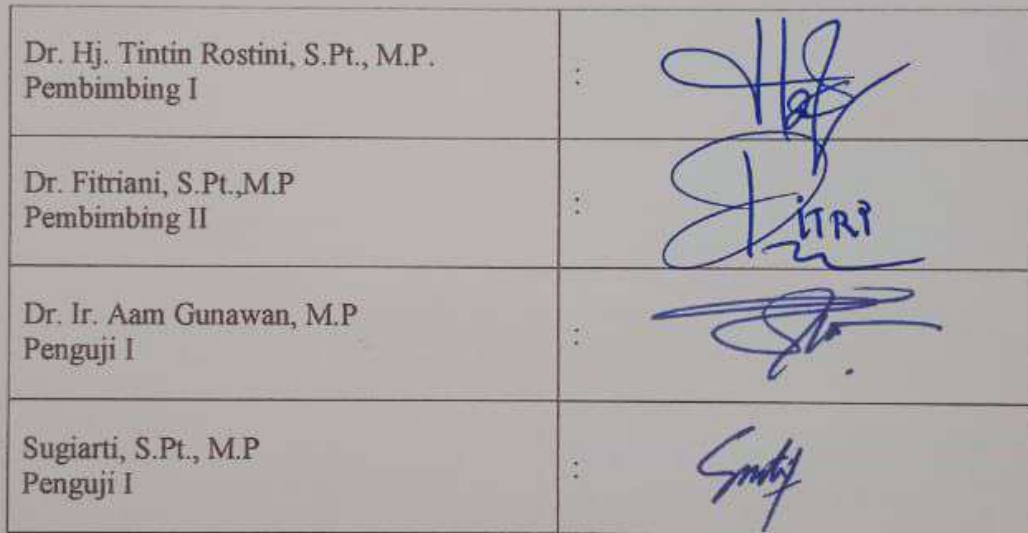 Dr. Hj. Tintin Rostini, S.Pt., M.P.
Pembimbing I
:
Dr. Fitriani, S.Pt.,M.P
Pembimbing II
:
ITRI
Dr. Ir. Aam Gunawan, M.P
Penguji I
:
Sugiarti, S.Pt., M.P
Penguji I
: